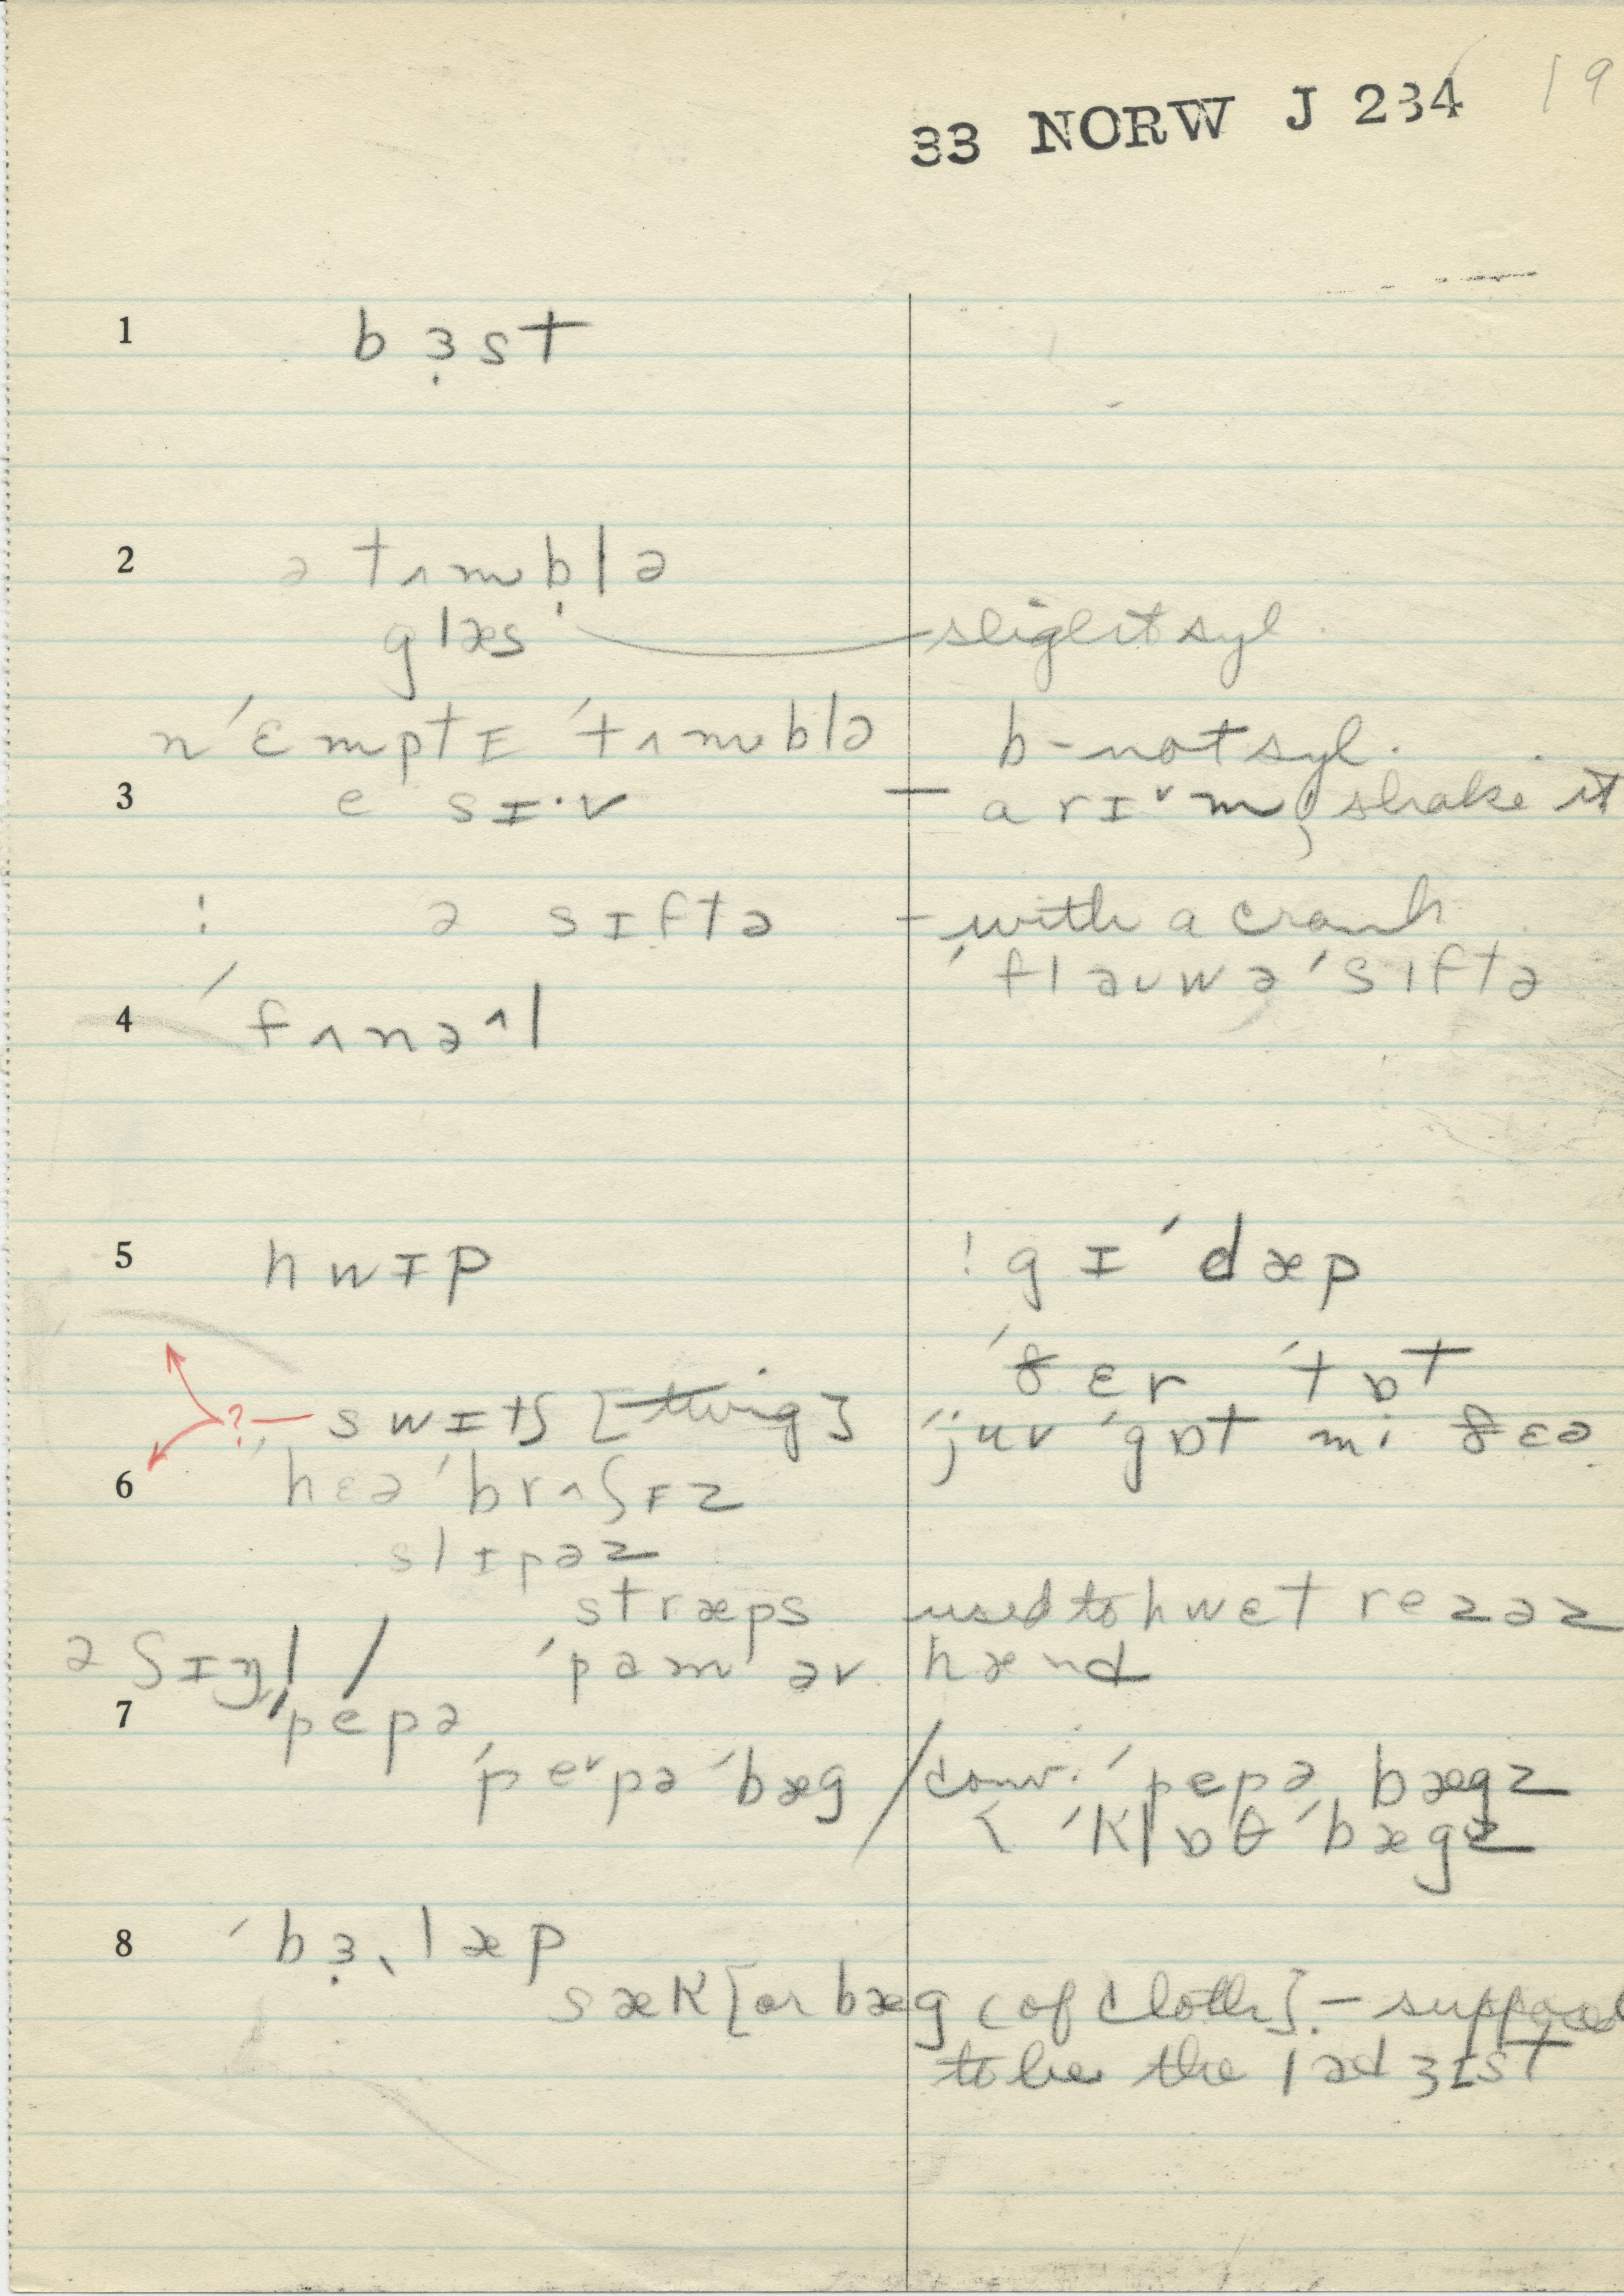 33 NORW J 234 19
1 b ɜ̣ s t
2 ə tʌmb̩lə
glæs slight syl.
n ˈɛmptɪ ˈtʌmblə b - not syl.
3 e sɪ·v — a rɪᵛm, shake it
! ə sɪftə - with a crank
ˈflauwə ˈsɪftə
4 ˈfʌnəˆl
5 hwɪp ! gɪ ˈdæp
ˈðɛr ˈtɒt
? swɪtʃ [twig] ˈjuv ˈgɒt mi ðɛə
6 ˈhɛə ˈbrʌʃɪz
slɪpəz
stræps used to hwɛt rezəz
ə sɪŋl / ˈpam əv hænd
7 ˈpepə
ˈpeᵛpə ˈbæg / conv. ˈpepə bægz
< ˈklɒθ ˈbægz
8 ˈbɜ̣ˎlæp
sæk [or bæg (of cloth] - supposed
to be the ladʒɪst